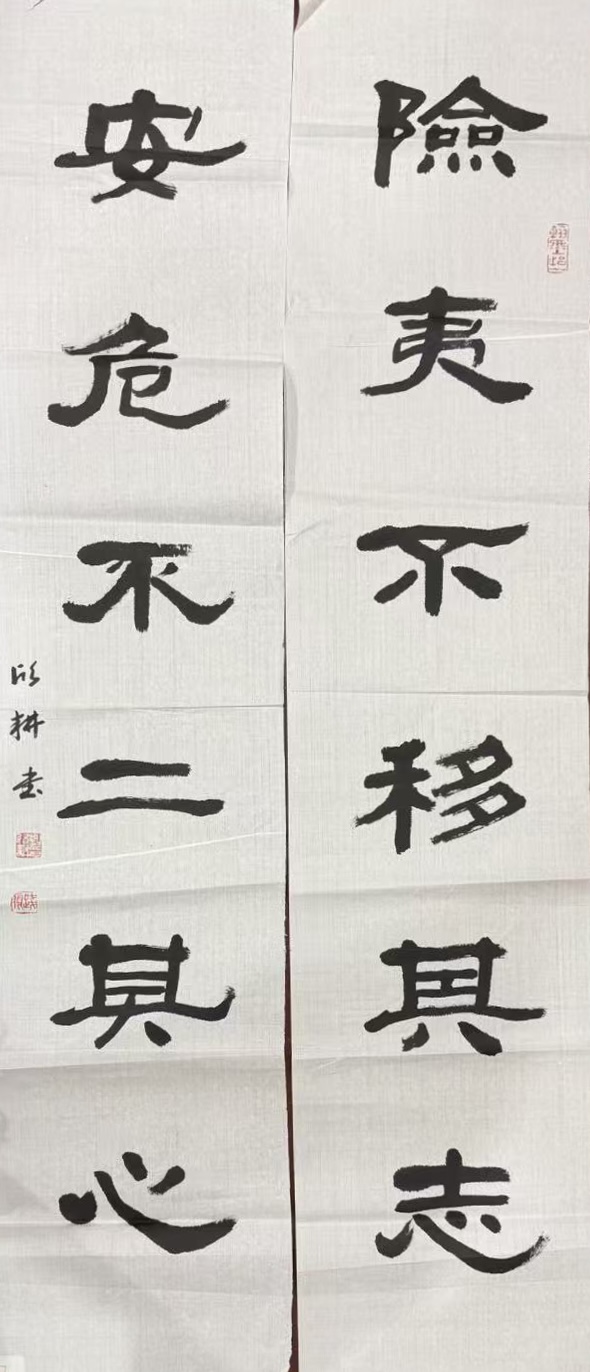 險夷不移其志
安危不二其心
耕書